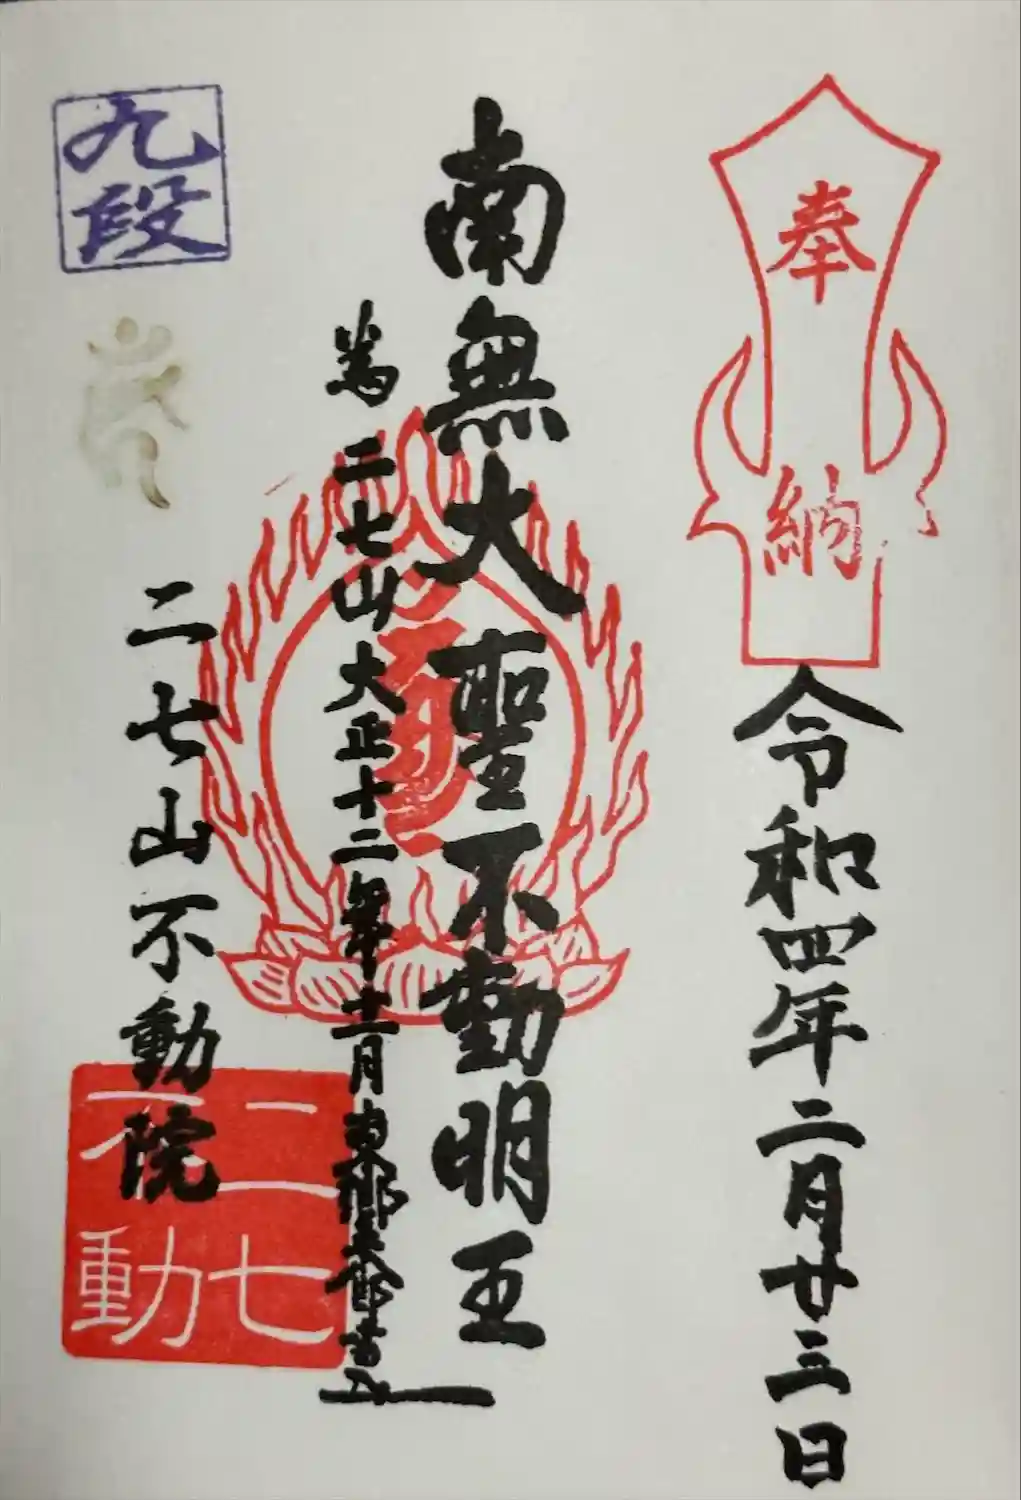 奉納
令和四年二月廿三日
南無大聖不動明王
二七山大正十二年十二月
九段
二七山不動院
二七
不動